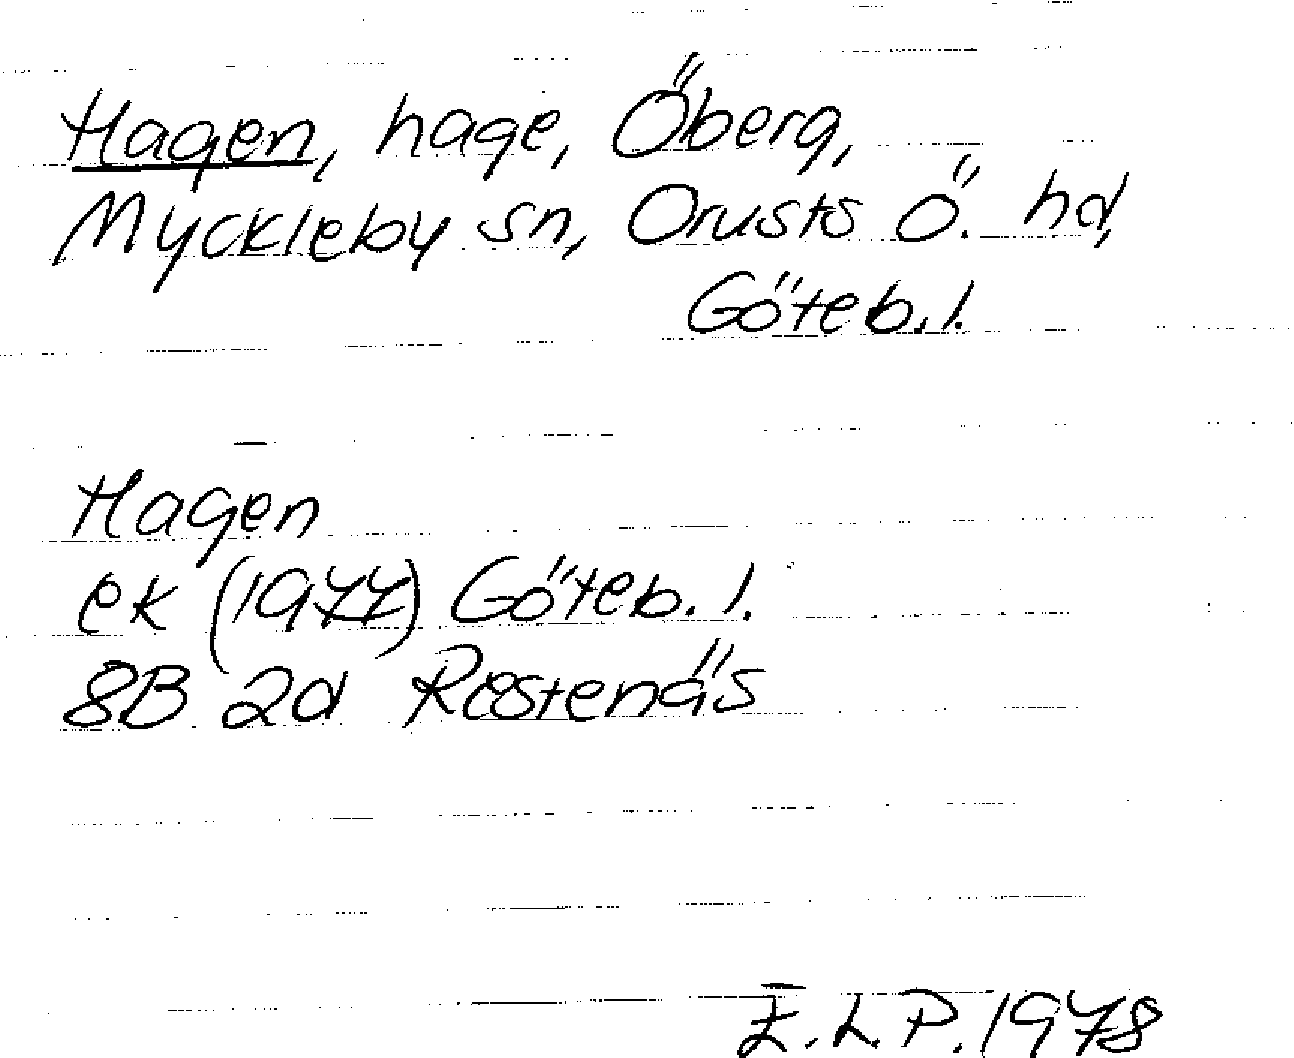 Hagen, hage, Öberg,
Myckleby sn, Orusts Ö. hd,
Göteb. l.
Hagen
ek (1977) Göteb. l.
8B 2d Restenäs
E.L.P. 1978